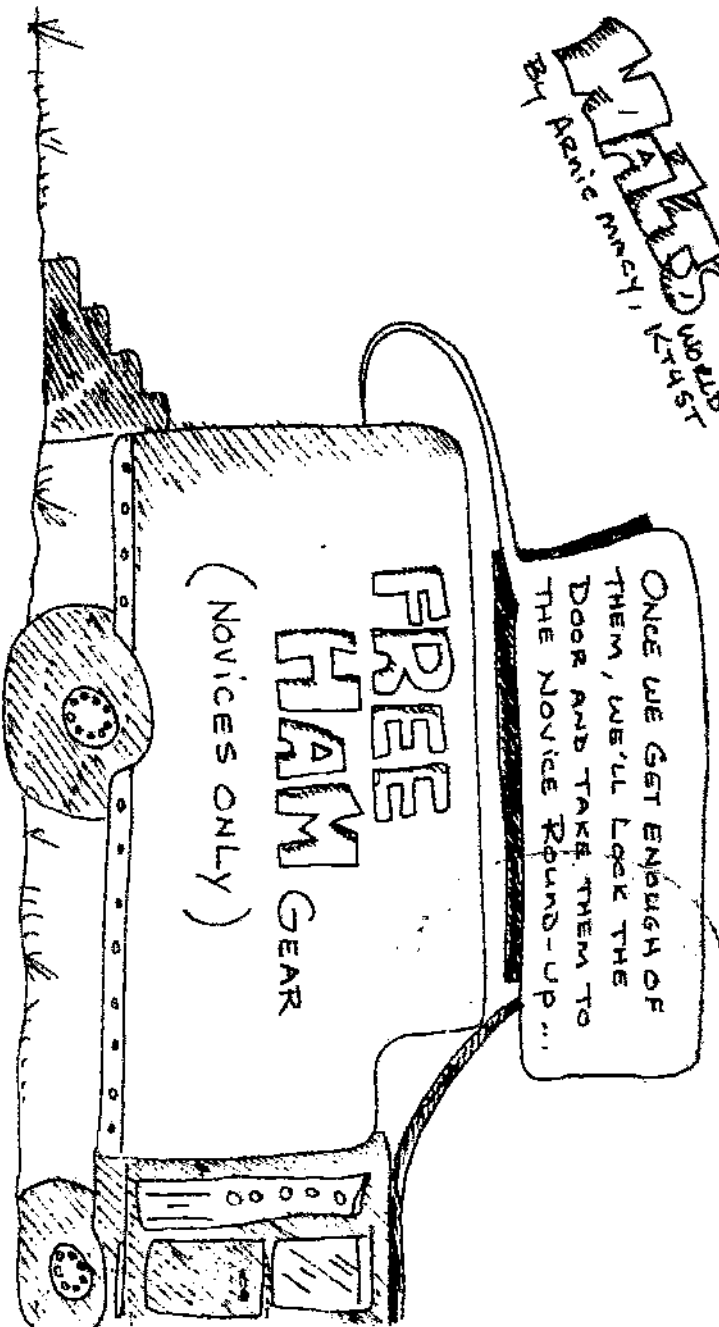 WORLD
By ARNIE MACY, KT4ST
ONCE WE GET ENOUGH OF
THEM, WE'LL LOCK THE
DOOR AND TAKE THEM TO
THE NOVICE ROUND-UP...
FREE
HAM GEAR
(NOVICES ONLY)